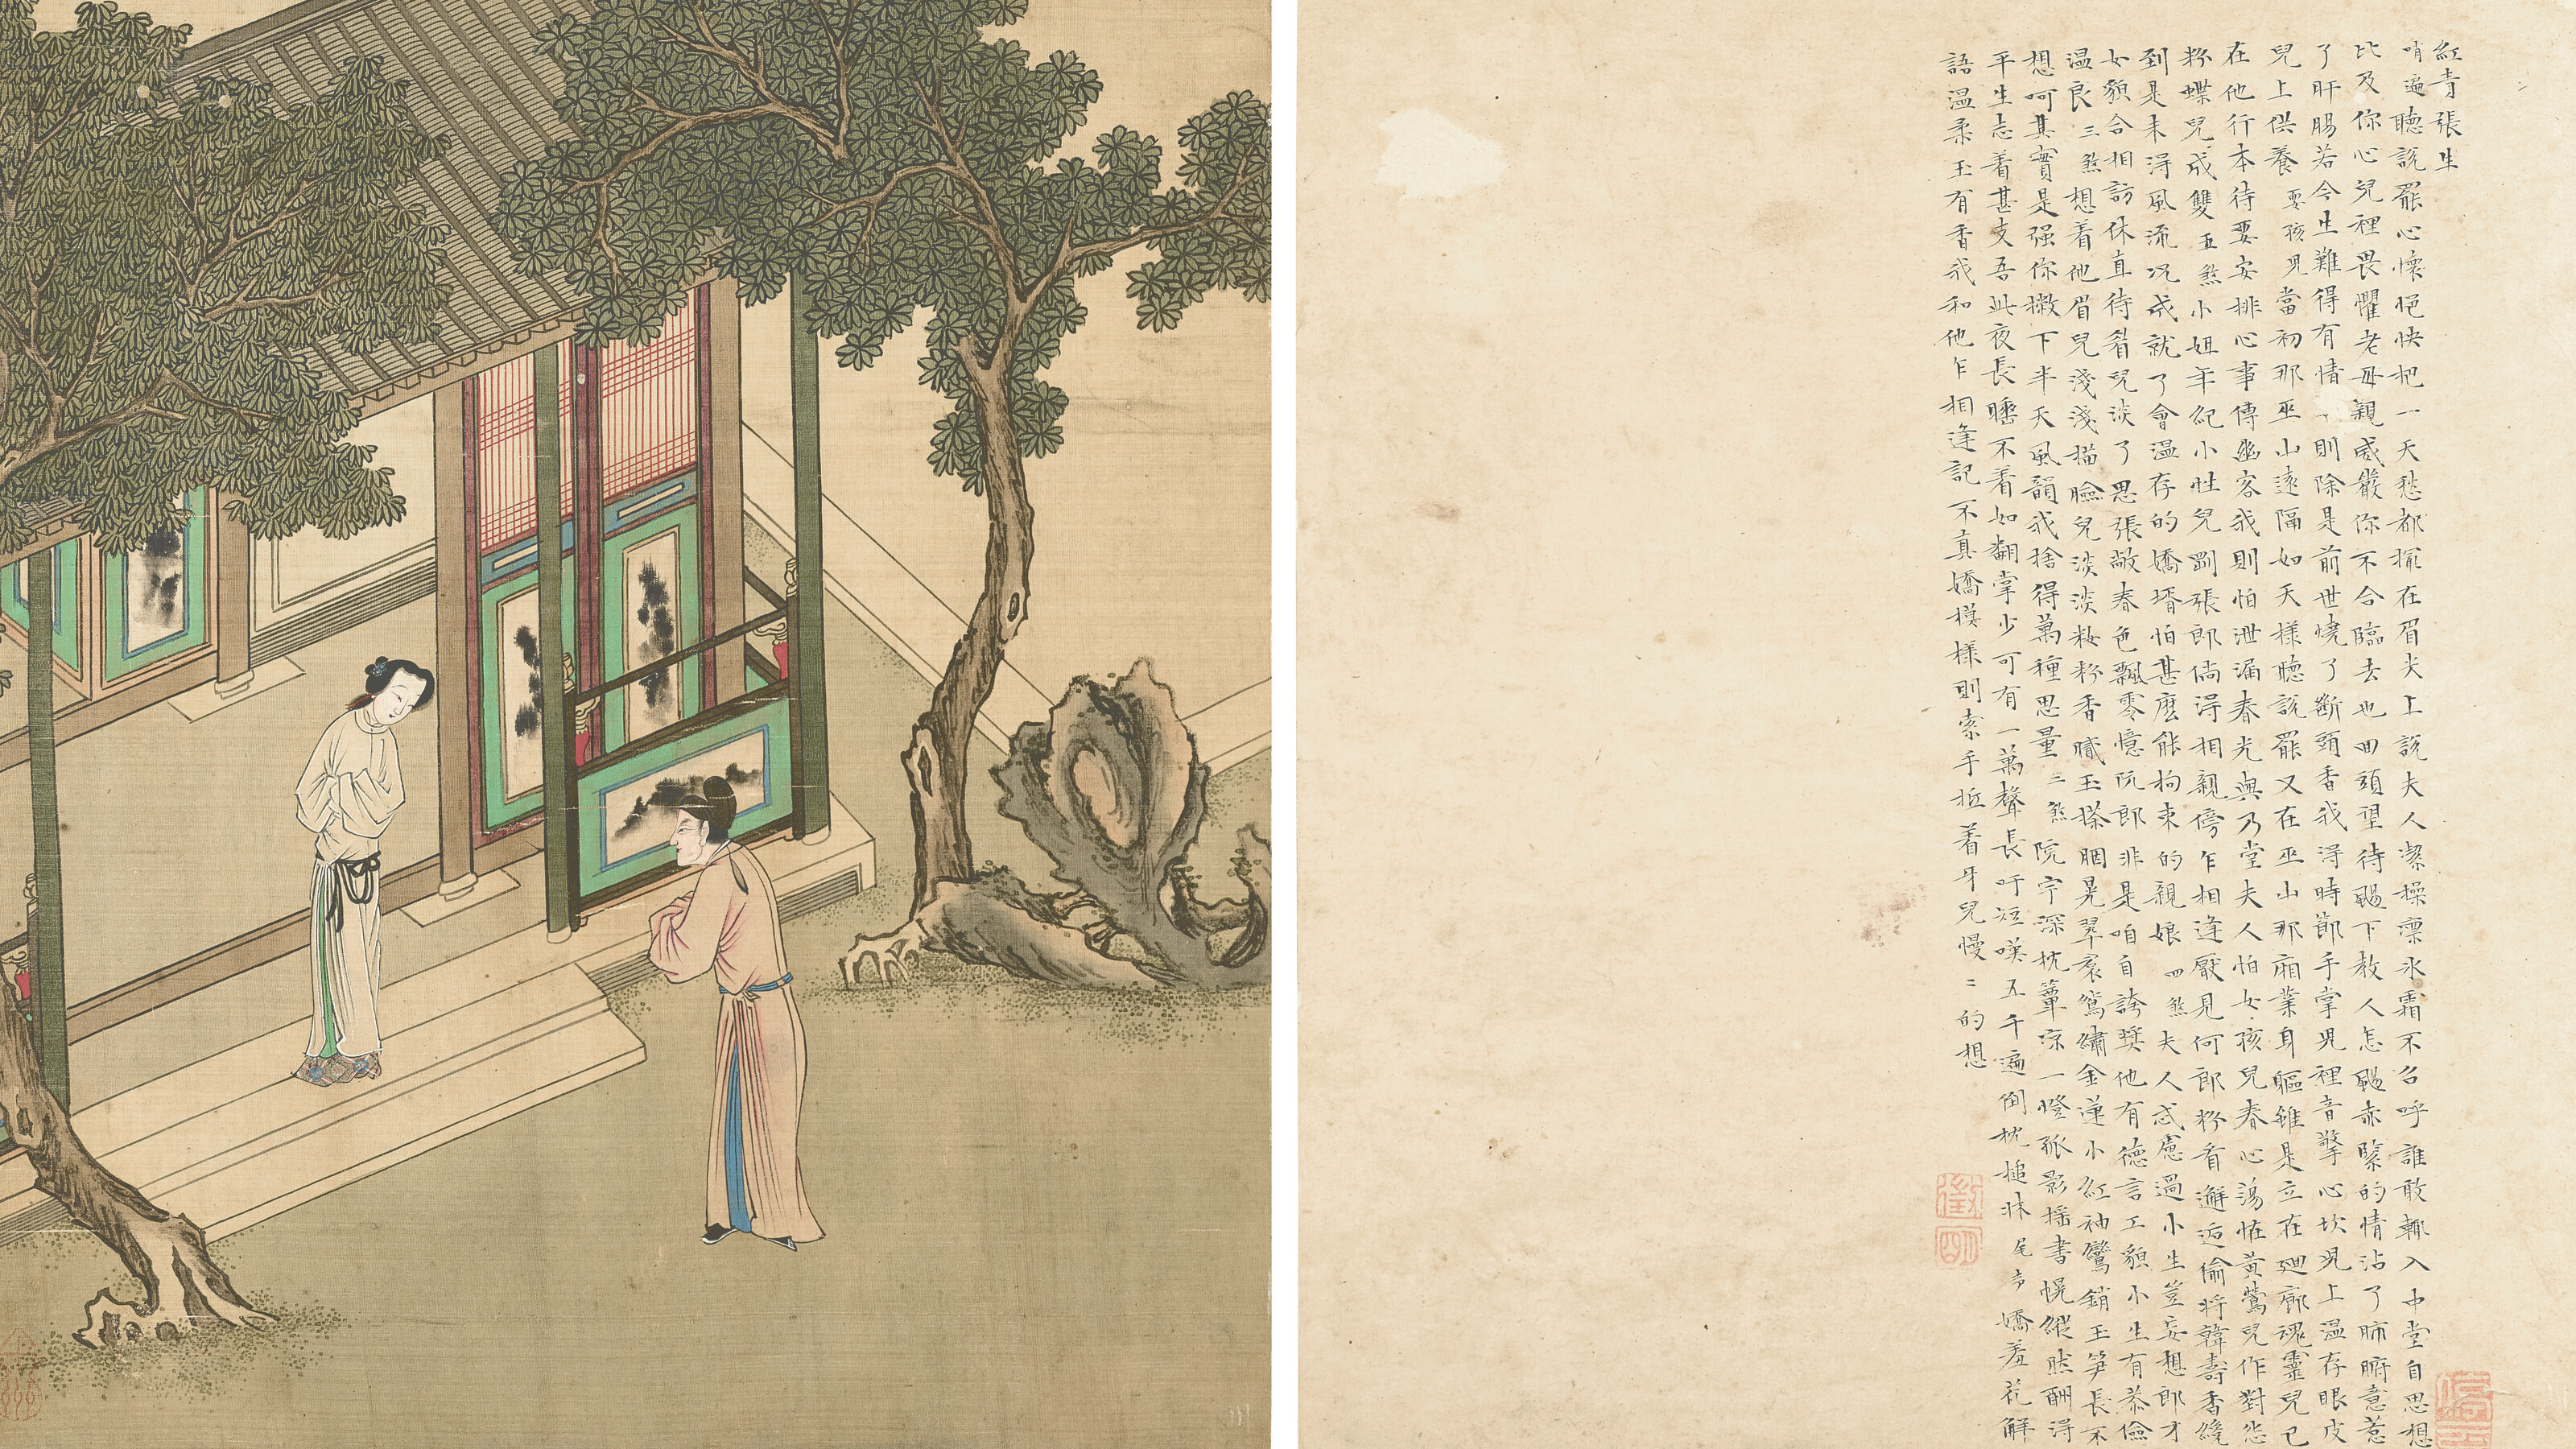 紅青張生
哨遍聽說罷心懷悒怏把一天愁都撮在眉尖上說夫人潔操凛氷霜不召呼誰敢輒入中堂自思想
比及你心兒裡畏懼老母親威嚴你不合臨去也回頭望待颺下教人怎颺赤緊的情沾了肺腑意惹
了肝腸若今生難得有情則除是前世燒了斷頭香我得時節手掌兒裡音擎心坎兒上温存眼皮
兒上供養耍孩兒當初那巫山遠隔如天樣聽說罷又在巫山那廂業身軀雖是立在廻廊魂靈兒已
在他行本待要安排心事傳幽客我則怕泄漏春光與乃堂夫人怕女孩兒春心蕩恠黃鶯兒作對怨
粉蝶兒成雙五煞小姐年紀小性兒剛張郎倘得相親傍乍相逢厭見何郎粉看邂逅偷將韓壽香纔
到是未得風流况成就了會温存的嬌壻怕甚麽能拘束的親娘四煞夫人忒慮過小生豈妄想郎才
女貌合相訪休直待眉兒淡了思張敞春色飄零憶阮郎非是咱自誇獎他有德言工貌小生有恭儉
温良三煞想着他眉兒淺淺描臉兒淡淡粧粉香膩玉搽胭晃翠裙鴛繡金蓮小紅袖鸞銷玉笋長不
想呵其實是强你撇下半天風韻我捨得萬種思量二煞院宇深枕簟凉一燈孤影搖書幌縱然酬得
平生志着甚支吾此夜長睡不着如翻掌少可有一萬聲長吁短嘆五千遍倒枕搥牀尾声嬌羞花解
語温柔玉有香我和他乍相逢記不真嬌模樣則索手抵着牙兒慢二的想
徵明